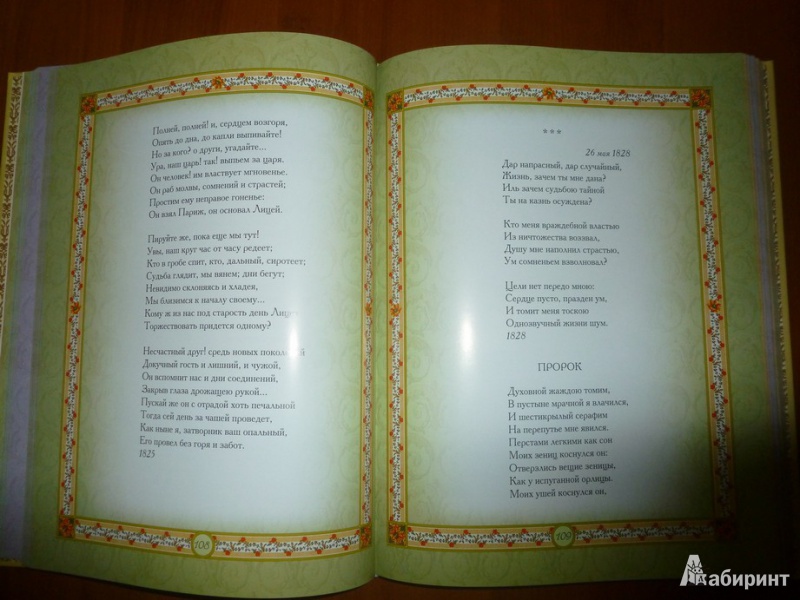 Полней, полней! и, сердцем возгоря,
Опять до дна, до капли выпивайте!
Но за кого? о други, угадайте...
Ура, наш царь! так! выпьем за царя.
Он человек! им властвует мгновенье.
Он раб молвы, сомнений и страстей;
Простим ему неправое гоненье:
Он взял Париж, он основал Лицей.
Пируйте же, пока еще мы тут!
Увы, наш круг час от часу редеет;
Кто в гробе спит, кто, дальный, сиротеет;
Судьба глядит, мы вянем; дни бегут;
Невидимо склоняясь и хладея,
Мы близимся к началу своему...
Кому ж из нас под старость день Лицея
Торжествовать придется одному?
Несчастный друг! средь новых поколений
Докучный гость и лишний, и чужой,
Он вспомнит нас и дни соединений,
Закрыв глаза дрожащею рукой...
Пускай же он с отрадой хоть печальной
Тогда сей день за чашей проведет,
Как ныне я, затворник ваш опальный,
Его провел без горя и забот.
1825
108
***
26 мая 1828
Дар напрасный, дар случайный,
Жизнь, зачем ты мне дана?
Иль зачем судьбою тайной
Ты на казнь осуждена?
Кто меня враждебной властью
Из ничтожества воззвал,
Душу мне наполнил страстью,
Ум сомненьем взволновал?
Цели нет передо мною:
Сердце пусто, празден ум,
И томит меня тоскою
Однозвучный жизни шум.
1828
ПРОРОК
Духовной жаждою томим,
В пустыне мрачной я влачился,
И шестикрылый серафим
На перепутье мне явился.
Перстами легкими как сон
Моих зениц коснулся он:
Отверзлись вещие зеницы,
Как у испуганной орлицы.
Моих ушей коснулся он,
109
Лабиринт